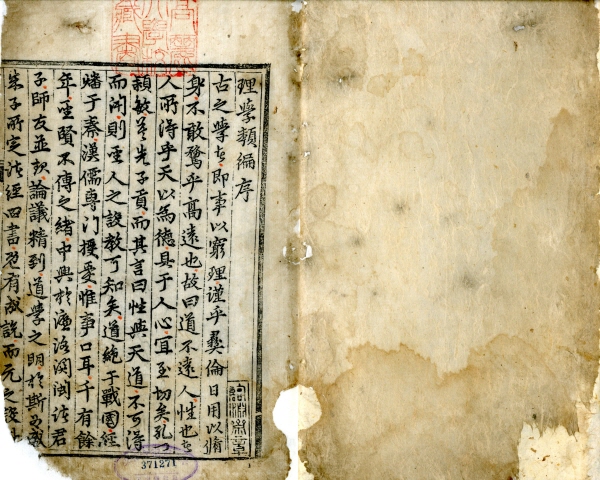 理學類編序
古之學者即事以窮理謹乎彝倫日用以脩
身不敢騖乎高遠也故曰道不遠人性也者
人所得乎天以為德具于人心宜至切矣孔
穎敏莫先子貢而其言曰性與天道不可得
而聞則聖人之設教可知矣道絶于戰國經
燔于秦漢儒專門授受惟事口耳千有餘
年聖賢不傳之緒中興於濂洛関閩諸君
子師友並起論議精到道學之明於斯為盛
朱子所定諸經四書乃有成說而元之設
371271